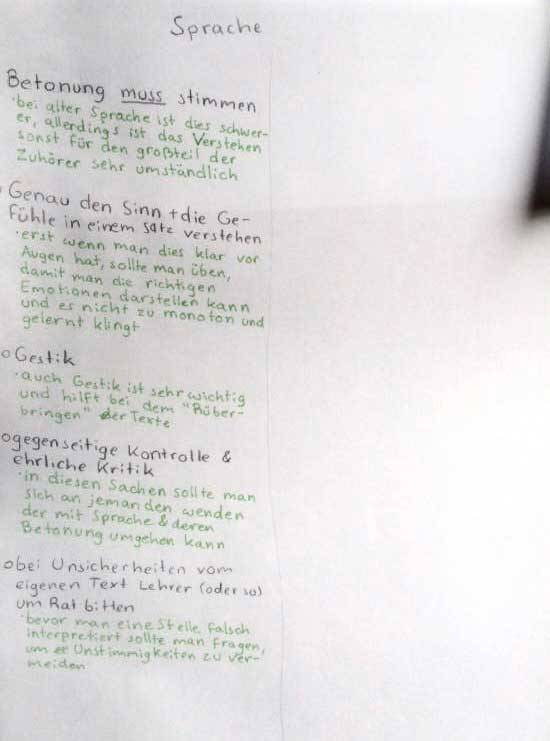 Sprache
Betonung muss stimmen
·bei alter Sprache ist dies schwer-
er, allerdings ist das Verstehen
sonst für den großteil der
Zuhörer sehr umständlich
o Genau den Sinn + die Ge-
fühle in einem Satz verstehen
·erst wenn man dies klar vor
Augen hat, sollte man üben,
damit man die richtigen
Emotionen darstellen kann
und es nicht zu monoton und
gelernt klingt
o Gestik
·auch Gestik ist sehr wichtig
und hilft bei dem "Rüber-
bringen" der Texte
o gegenseitige Kontrolle &
ehrliche Kritik
·in diesen Sachen sollte man
sich an jemanden wenden
der mit Sprache & deren
Betonung umgehen kann
o bei Unsicherheiten vom
eigenen Text Lehrer (oder so)
um Rat bitten
·bevor man eine Stelle falsch
interpretiert sollte man fragen,
um Unstimmigkeiten zu ver-
meiden